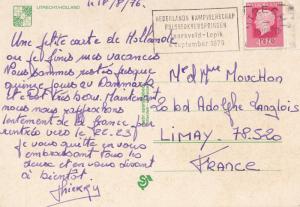 UTRECHT/HOLLAND
NEDERLANDS KAMPIOENSCHAP
POLSSTOKVERSPRINGEN
Lopik
september 1976
Une petite carte de Hollande
où je finis mes vacances
Nous sommes restés presque
quinze jours au Danemark
c'est très beau. Maintenant
nous nous rapprochons
lentement de la France pour
rentrer vers le 22.23
je vous quitte en vous
embrassant tous les
deux et en vous disant
à bientôt.
Thierry
M et Mme Mouchon
20 bd Adolphe Langlois
LIMAY 78520
FRANCE